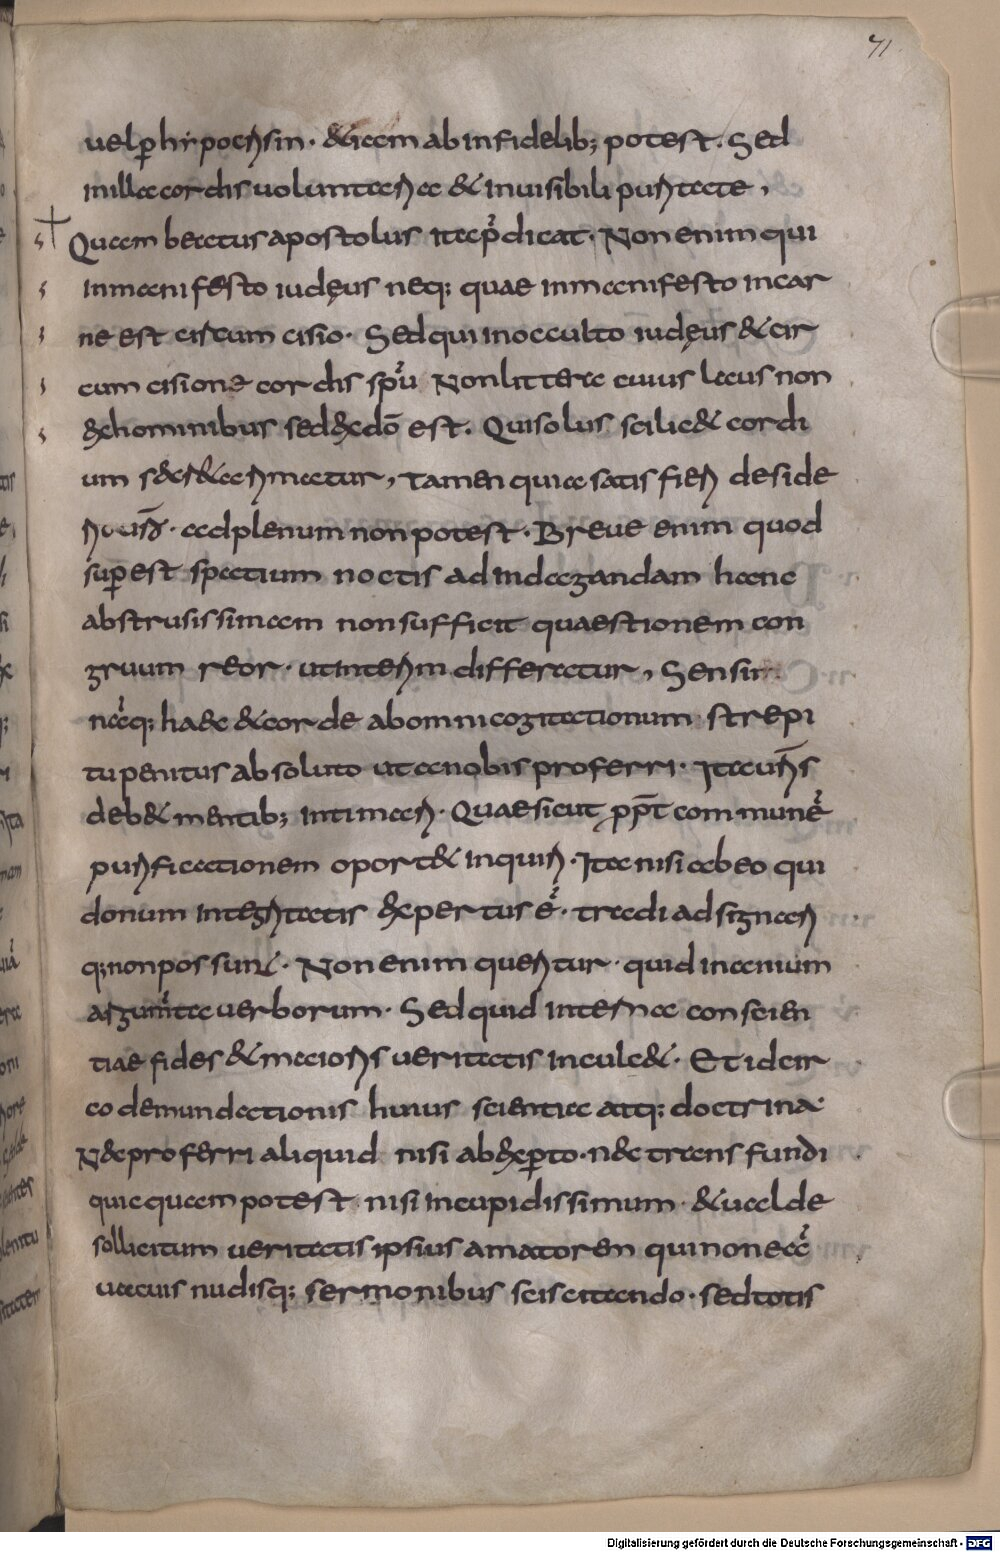 71
uel p̲ hypocrisin · &iam ab infidelib; potest. Sed
in illa cordis uoluntaria & inuisibili puritate,
Quam beatus apostolus ita p̄dicat. Non enim qui
in manifesto iudęus neq; quae in manifesto in car
ne est circum cisio. Sed qui in occulto iudęus & cir
cum cisione cordis spū Non littera cuius laus non
ex hominibus sed ex dō est. Qui solus scilic& cordi
um secr&a rimatur, tamen quia satis fieri deside
ad plenum non potest. Breue enim quod
sup̲est spatium noctis ad indagandam hanc
abstrusissimam non sufficit quaestionem con
gruum reor · ut interim differatur, Sensim
naq; haec & corde ab omni cogitationum strepi
tu penitus absoluto ut a nobis proferri · Ita uris
deb& mentib; intimari. Quae sicut p̲p̄t commune
purificationem oport& inquiri. Ita nisi ab eo qui
donum integritatis expertus ē · tradi ad signari
q; non possunt. Non enim queritur quid inanium
argumta uerborum. Sed quid interna conscien
tiae fides & maioris ueritatis inculc&. Et idcir
co demundationis huius scientia atq; doctrina
N&c proferri aliquid nisi ab exp̲to · nec transfundi
quicquam potest nisi in cupidissimum & ualde
sollicitum ueritatis ipsius amatorem qui non eā
uacuis nudisq; sermonibus sciscitando · sed totis
Digitalisierung gefördert durch die Deutsche Forschungsgemeinschaft - DFG